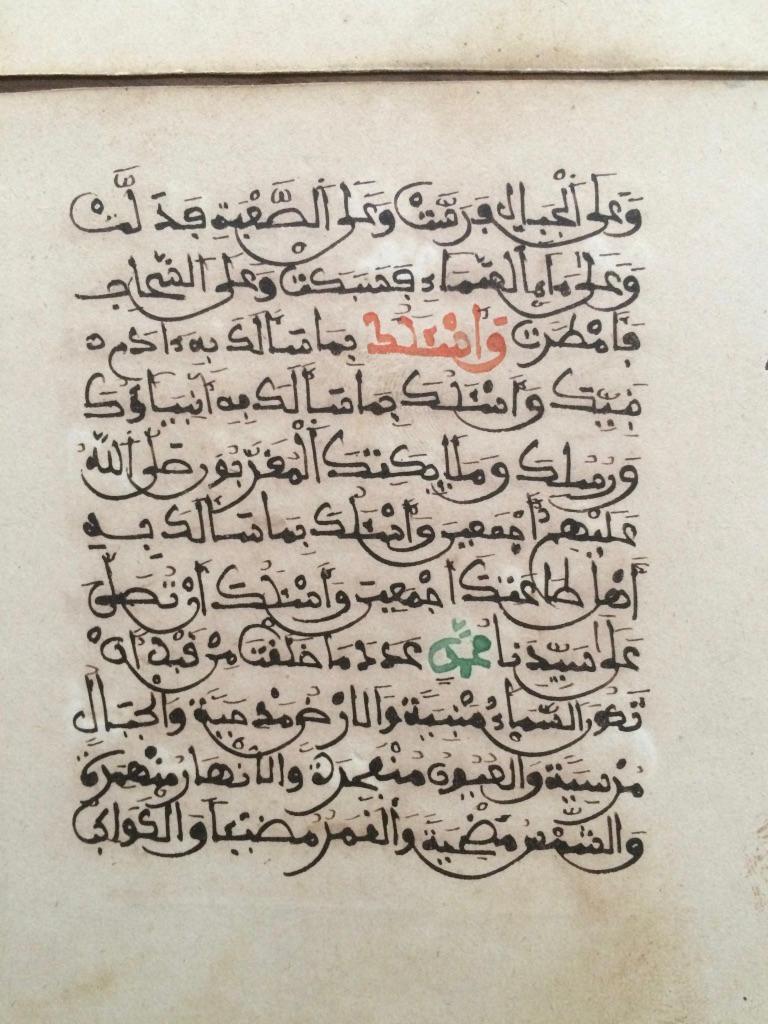 وَعَلَى الْجِبَالِ فَرَسَتْ وَعَلَى الصَّعْبَةِ فَذَلَّتْ
وَعَلَى مَاءِ السَّمَاءِ فَسَكَبَتْ وَعَلَى السَّحَابِ
فَأَمْطَرَتْ وَأَسْئَلُكَ بِمَا سَأَلَكَ بِهِ ءَادَمُ
نَبِيُّكَ وَأَسْئَلُكَ بِمَا سَأَلَكَ بِهِ أَنْبِيَاؤُكَ
وَرُسُلُكَ وَمَلَائِكَتُكَ الْمُقَرَّبُونَ صَلَّى اللهُ
عَلَيْهِمْ أَجْمَعِينَ وَأَسْئَلُكَ بِمَا سَأَلَكَ بِهِ
أَهْلُ طَاعَتِكَ أَجْمَعِينَ وَأَسْئَلُكَ أَنْ تُصَلِّيَ
عَلَى سَيِّدِنَا مُحَمَّدٍ عَدَدَ مَا خَلَقْتَ مِنْ قَبْلِ أَنْ
تَكُونَ السَّمَاءُ مَبْنِيَّةً وَالْأَرْضُ مَدْحِيَّةً وَالْجِبَالُ
مُرْسِيَةً وَالْعُيُونُ مُنْفَجِرَةً وَالْأَنْهَارُ مُنْهَمِرَةً
وَالشَّمْسُ مُضْحِيَةً وَالْقَمَرُ مُضِيئًا وَالْكَوَاكِبُ